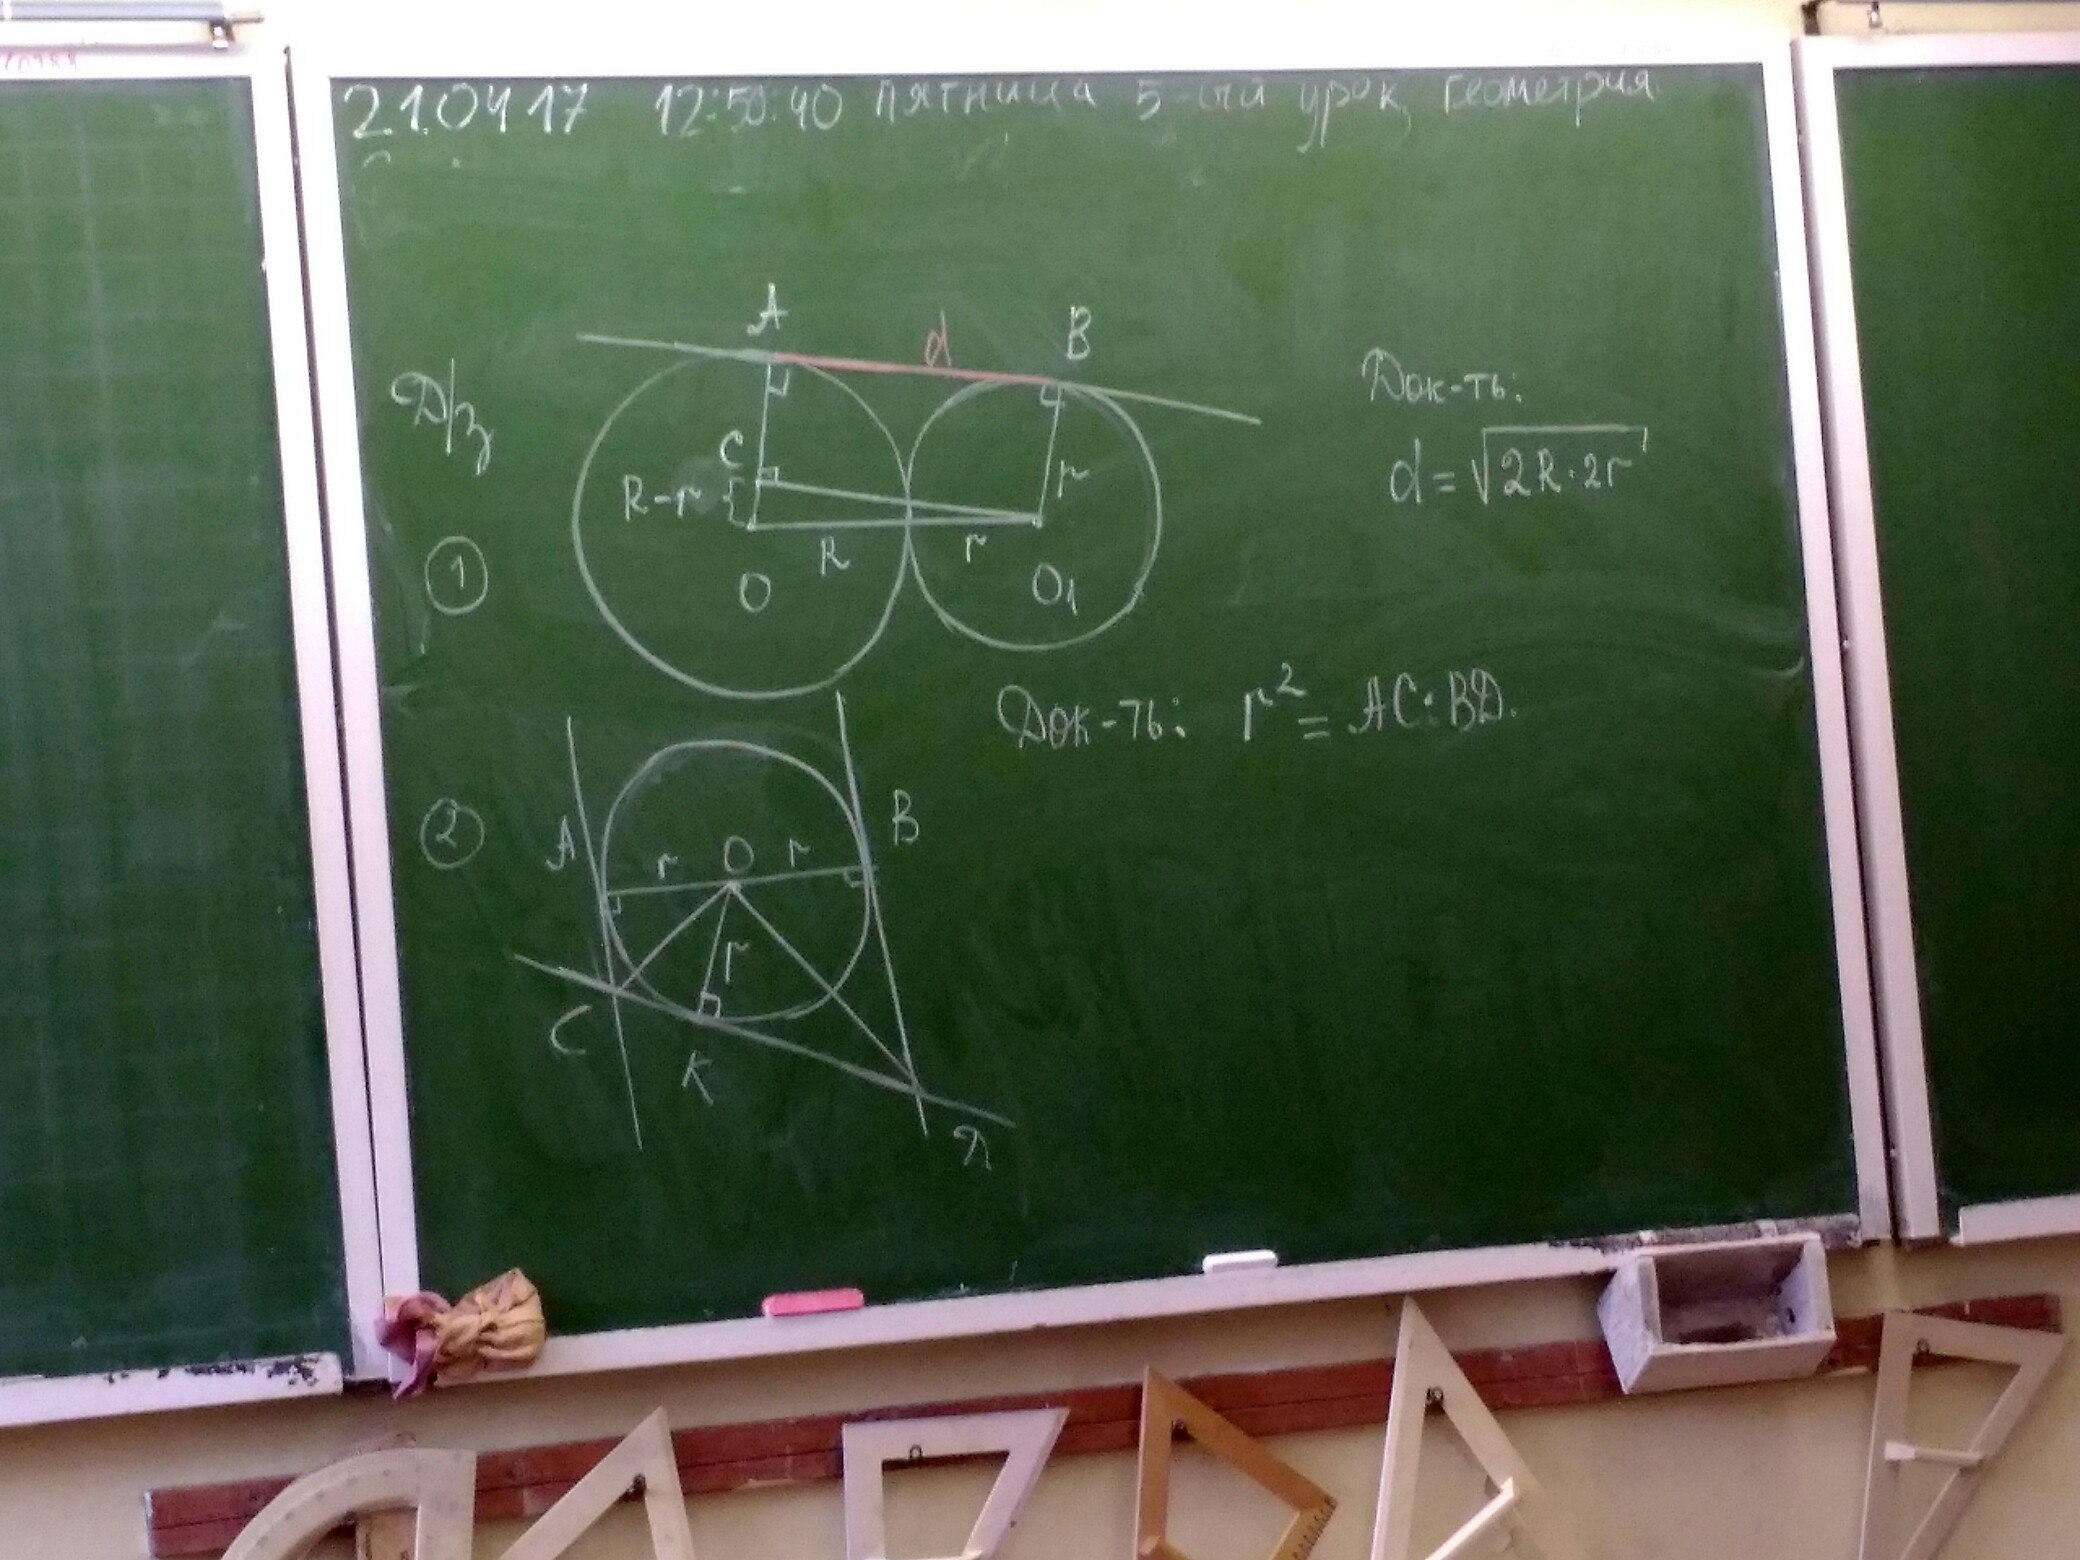 21.04 17 12:50:40 пятница 5-ый урок, Геометрия
A
d
B
Д/з
Док-ть:
d = √2R·2r
C
R-r
r
1
R
r
O
O1
Док-ть: r² = AC·BD.
2
A
r
O
r
B
r
C
K
D